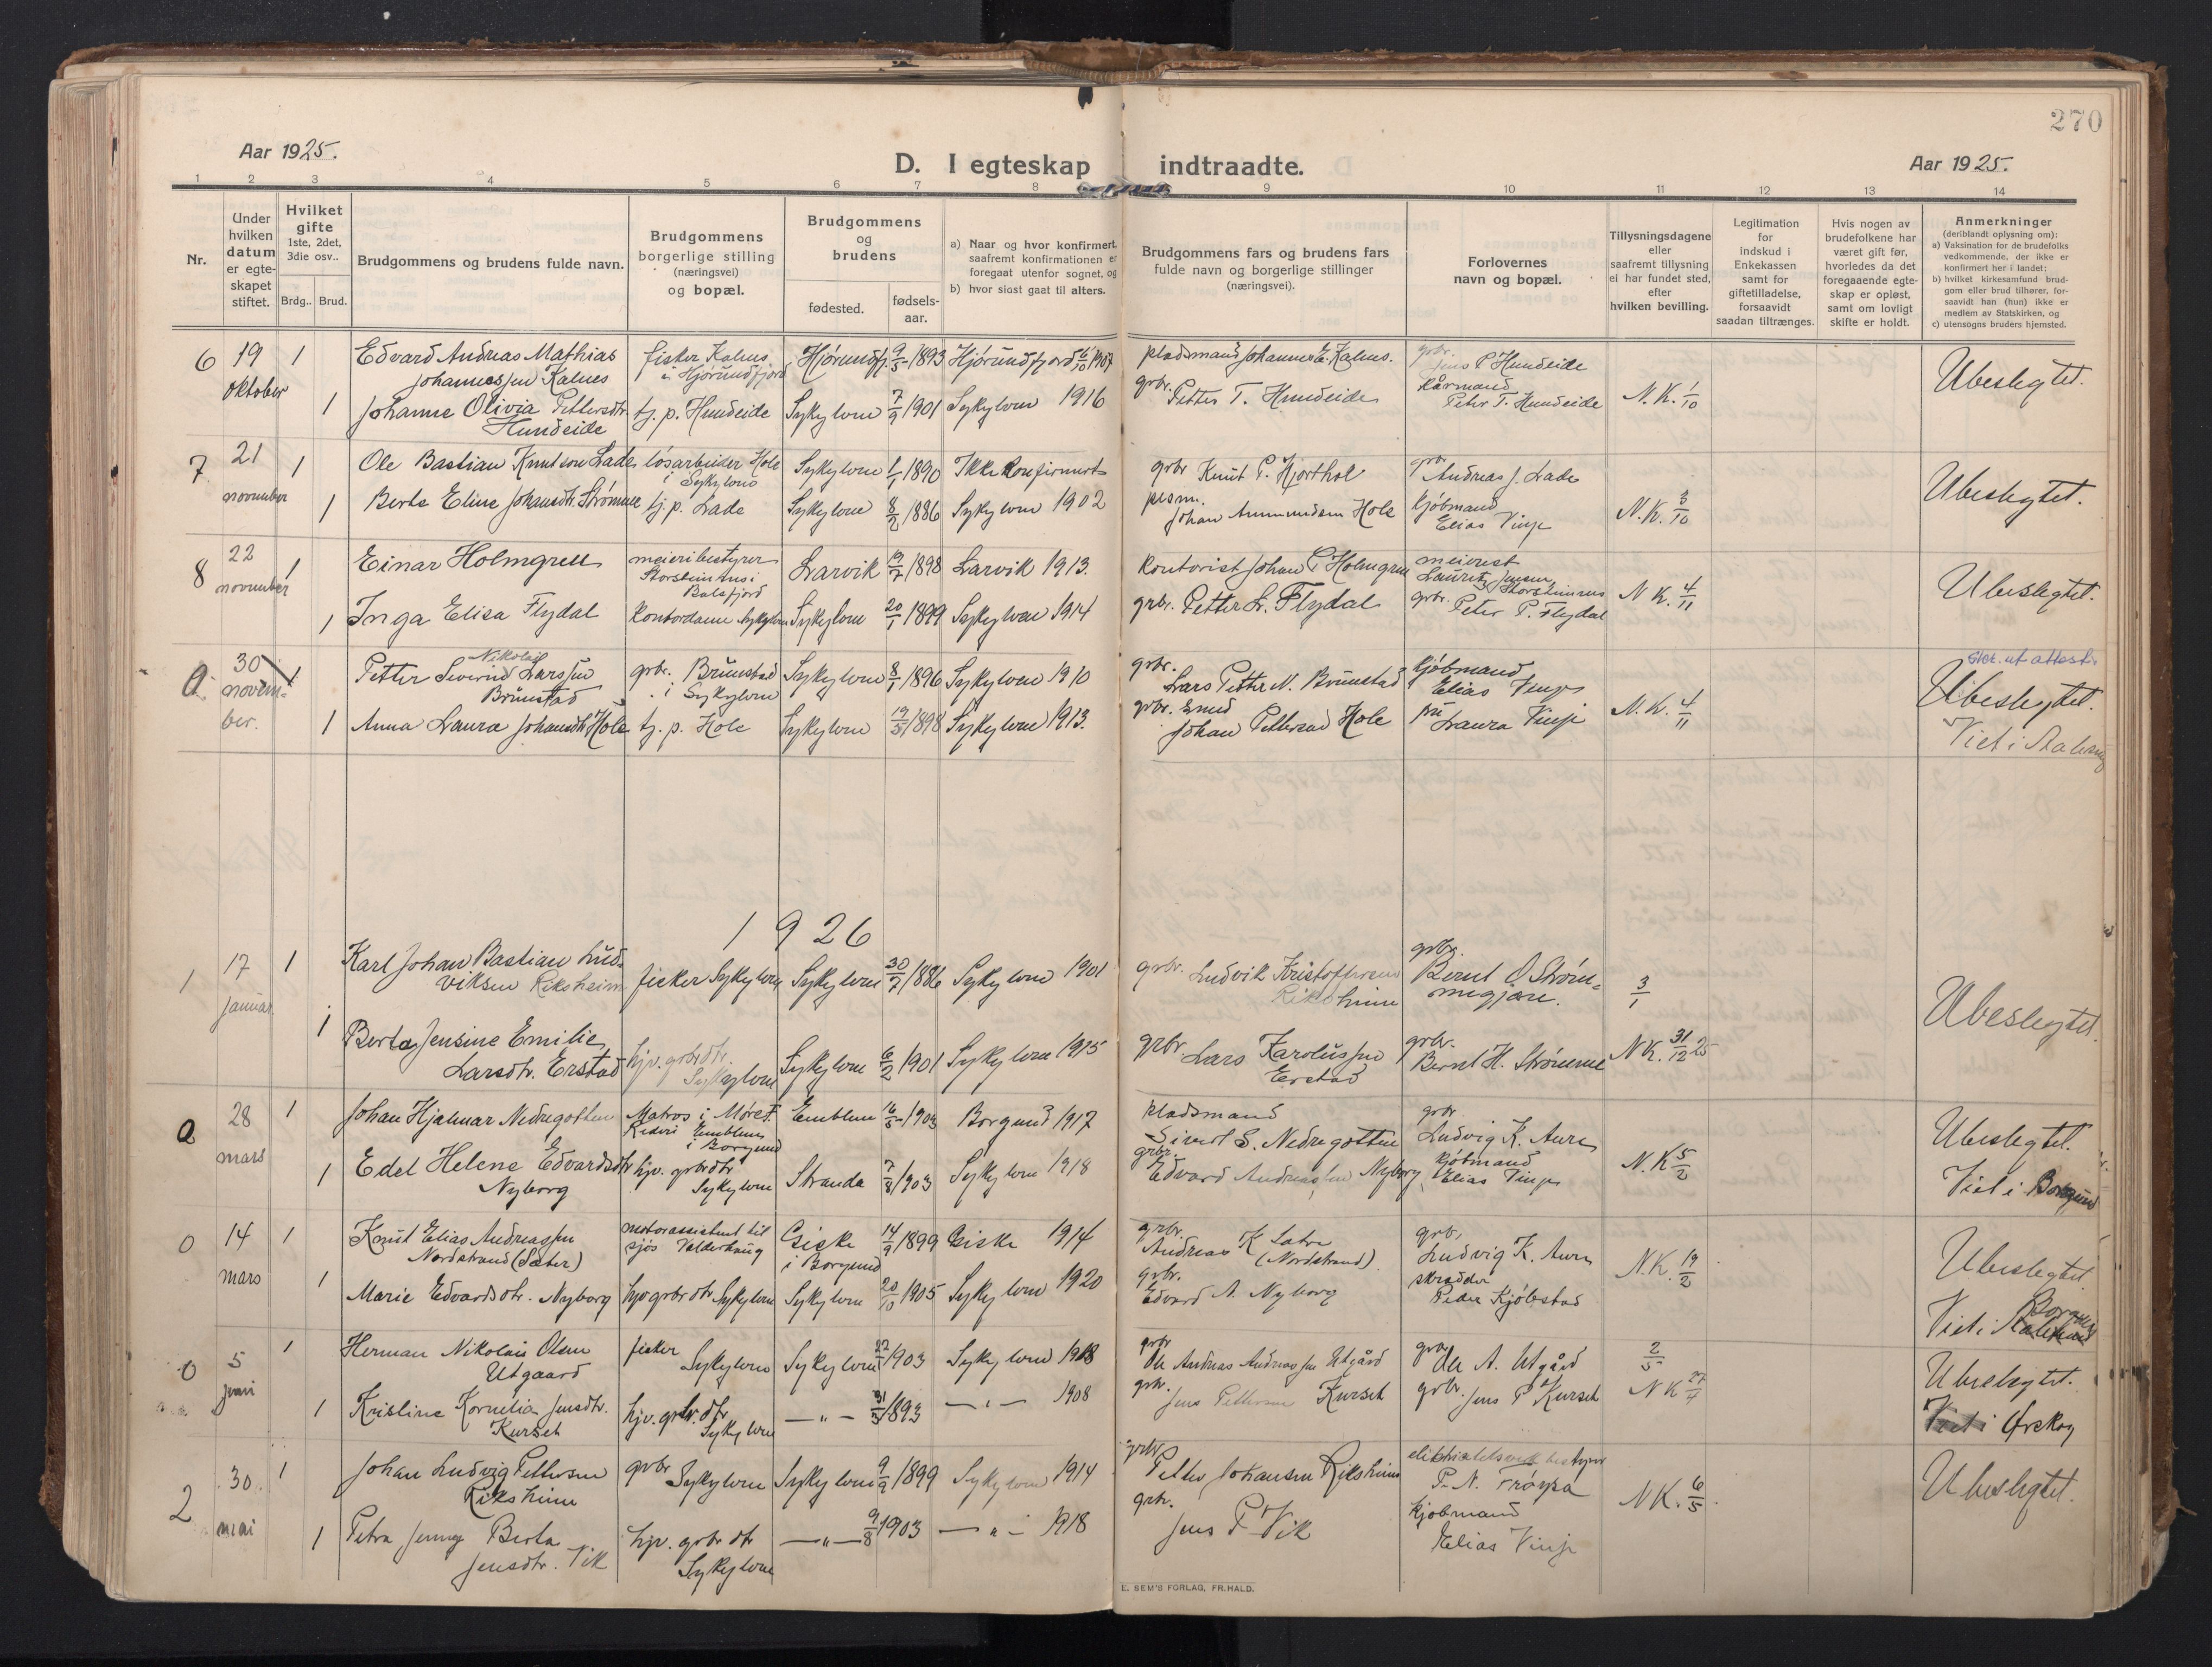 270
Aar 1925.
D. I egteskap indtraadte.
Aar 1925.
1 2 3 4 5 6 7 8 9 10 11 12 13 14
Nr.
Under hvilken datum er egteskapet stiftet.
Hvilket gifte 1ste, 2det, 3die osv..
Brdg.. Brud.
Brudgommens og brudens fulde navn.
Brudgommens borgerlige stilling (næringsvei) og bopæl.
Brudgommens og brudens
fødested. fødselsaar.
a) Naar og hvor konfirmert, saafremt konfirmationen er foregaat utenfor sognet, og
b) hvor sidst gaat til alters.
Brudgommens fars og brudens fars fulde navn og borgerlige stillinger (næringsvei).
Forlovernes navn og bopæl.
Tillysningsdagene eller saafremt tillysning ei har fundet sted, efter hvilken bevilling.
Legitimation for indskud i Enkekassen samt for giftetilladelse, forsaavidt saadan tiltrænges.
Hvis nogen av brudefolkene har været gift før, hvorledes da det foregaaende egteskap er opløst, samt om lovligt skifte er holdt.
Anmerkninger (deriblandt oplysning om):
a) Vaksination for de brudefolks vedkommende, der ikke er konfirmert her i landet;
b) hvilket kirkesamfund brudgom eller brud tilhører, forsaavidt han (hun) ikke er medlem av Statskirken, og
c) utensogns bruders hjemsted.
6 19 oktober 1 Edvard Andreas Mathias Johannessen Kalnes fisker Kalnes i Hjørundfjord Hjørundfj. 9/5 1893 Hjørundfjord 6/10 1907 pladsmand Johannes E. Kalnes. grbr. Jens P Hundeide Ubeslegtet.
1 Johanne Olivia Pettersdtr Hundeide tj. p. Hundeide Sykylven 7/9 1901 Sykylven 1916 grbr. Petter T. Hundeide kårmand Peter T. Hundeide N.K. 1/10
7 21 november 1 Ole Bastian Knutson Lade løsarbeider Hole i Sykylven Sykylven 1/1 1890 Ikke konfirmert grbr Knut P. Hjorthol grbr Andreas J. Lade Ubeslegtet.
1 Berte Eline Johansdtr. Strømme tj. p. Lade Sykylven 8/2 1886 Sykylven 1902 plsm. Johan Ammundsen Hole kjøbmand Elias Vinje N.K. 3/10
8 22 november 1 Einar Holmgren meieribestyrer Storsteinnes i Balsfjord Larvik 19/7 1898 Larvik 1913. Kontorist Johan P Holmgren meierist Lauritz Jensen Storsteinnes N K. 4/11 Ubeslegtet.
1 Inga Elisa Flydal kontordame Sykylven Sykylven 20/1 1899 Sykylven 1914 grbr. Petter L. Flydal grbr. Peter P. Flydal
0 30 november. 1 Petter Severin Nikolai Larssen Brunstad grbr. Brunstad i Sykylven Sykylven 8/1 1896 Sykylven 1910 grbr. Lars Petter N. Brunstad kjøbmand Elias Vinje Ubeslegtet.
1 Anna Laura Johansdtr Hole tj. p. Hole Sykylven 19/5 1898 Sykylven 1913. grbr. Johan Pettersen Hole fru Laura Vinje N.K. 4/11 Viet i
1926
1 17 januar. 1 Karl Johan Bastian Ludviksen Riksheim fisker Sykylven Sykylven 30/7 1886 Sykylven 1901 grbr. Ludvik Kristoffersen Riksheim grbr. Bernt O Strømmegjære. 3/1 Ubeslegtet
1 Berta Jensine Emilie Larsdtr. Erstad hjv. grbrdtr. Sykylven Sykylven 6/2 1901 Sykylven 1915 grbr Lars Karolussen Erstad grbr. Bernt H. Strømme N K. 31/12 25
0 28 mars 1 Johan Hjalmar Nedregotten Matros i Møre F. Rederi Emblem i Borgund Emblem 16/5 1903 Borgund 1917 pladsmand Sivert S. Nedregotten grbr Ludvig K. Aure Ubeslegtet.
1 Edel Helene Edvardsdtr Nyborg hjv. grbrdtr Sykylven Stranda 7/8 1903 Sykylven 1918 grbr. Edvard Andreassen Nyborg kjøbmand Elias Vinje N.K 5/2 Viet i Borgund
0 14 mars 1 Knut Elias Andreassen Nordstrand (Sæter) motorassistent til sjøs Valderhaug Giske i Borgund 14/9 1899 Giske 1914 grbr. Andreas K Sætre (Nordstrand). grbr, Ludvig K. Aure Ubeslegtet
1 Marie Edvardsdtr. Nyborg hjv grbr dtr Sykylven Sykylven 20/10 1905 Sykylven 1920 grbr. Edvard A. Nyborg skrædder Peder Kjølstad N.K. 19/2 Viet i Borgund
0 5 juni 1 Herman Nikolai Olsen Utgaard fisker Sykylven Sykylven 22/ 1903 Sykylven 1918 grbr Ole Andreas Andreassen Utgård grbr Ole A. Utgård 2/5 Ubeslegtet.
1 Kristine Kornelia Jensdtr. Kurset hjv. grbr. dtr Sykylven —"— 31/5 1893 —"— 1908 grbr. Jens Pettersen Kurset grbr. Jens P Kurset N K 27/4 Viet i Ørskog
2 30 mai 1 Johan Ludvig Pettersen Riksheim grbr Sykylven Sykylven 9/9 1899 Sykylven 1914 grbr Petter Johansen Riksheim elektrisitetsverk bestyrer P. N. Frøysa Ubeslegtet.
1 Petra Jenny Berta Jensdtr. Vik hjv. grbr dtr Sykylven —"— 9/8 1903 —"— 1918 grbr. Jens P Vik kjøbmand Elias Vinje N K. 6/5
E. SEM'S FORLAG, FR.HALD.